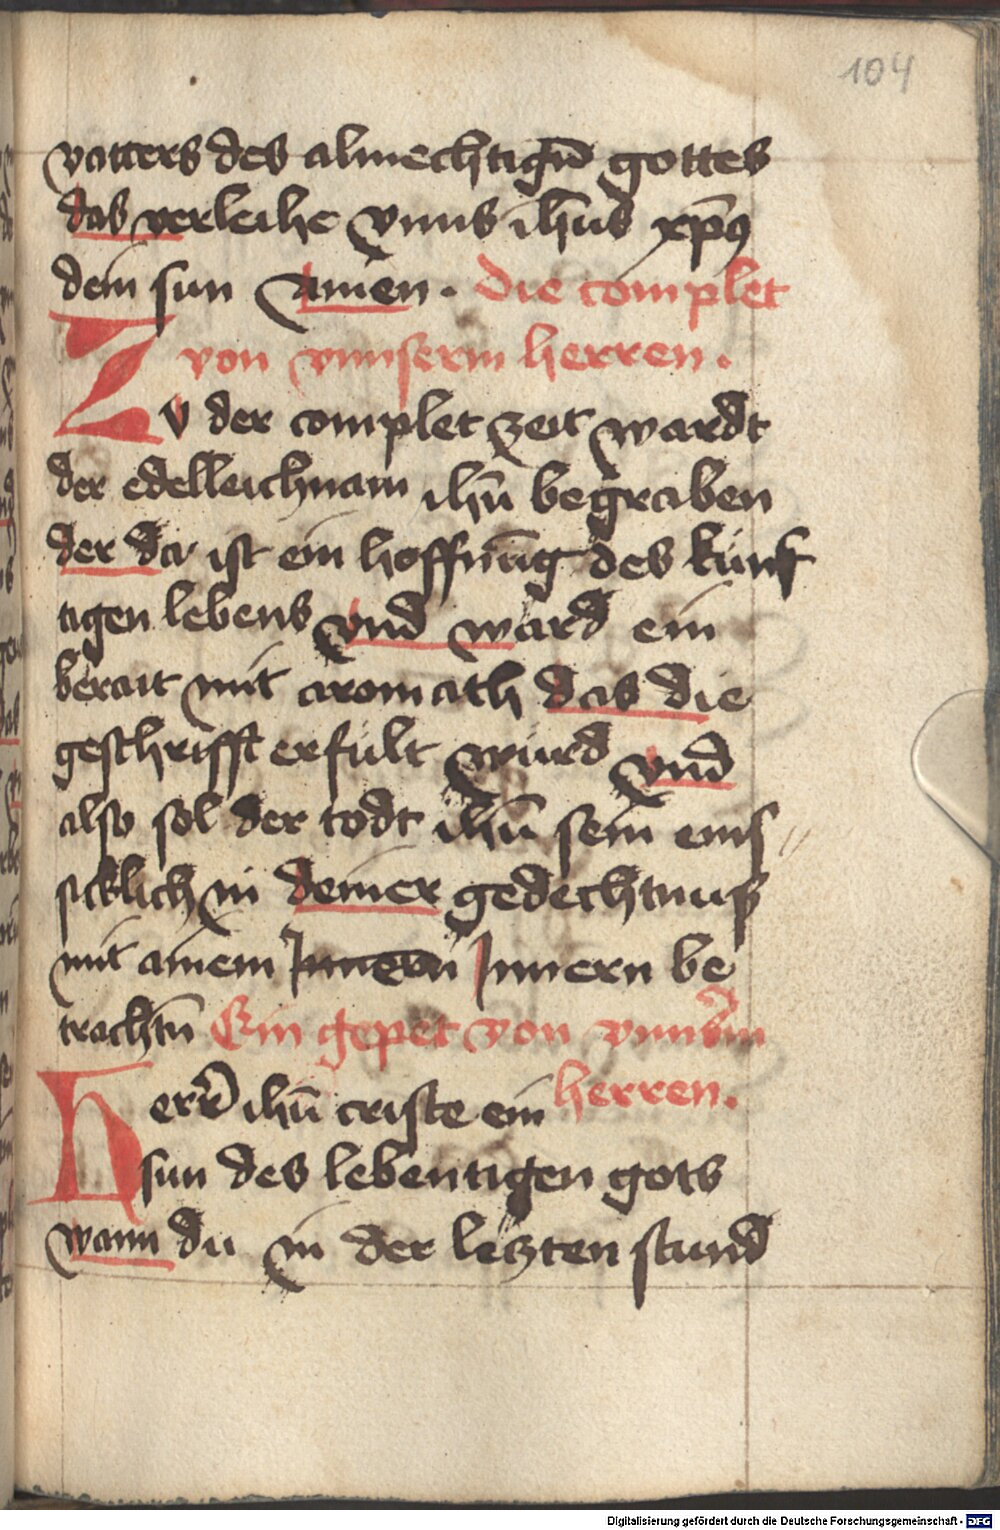 104
vatters des almechtigñ gottes
das verleihe vnns ihūs xp̄s
dein sun Amen. Die complet
von vnnserm herren.
Zv der complet zeit wardt
der edel leichnam ihū begraben
der da ist ein hoffnūg des künf
tigen lebens vnd ward ein
berait mit aromath das die
geschrifft erfült würd vnd
also sol der todt ihū sein ems
sicklich in deiner gedechtnuß
mit ainem Innern Innern be
trachtñ Ein gepet von vnnserm
herren.
Herr̄ ihū criste ein
sun des lebentigen gots
wann du in der letzten stund
Digitalisierung gefördert durch die Deutsche Forschungsgemeinschaft - DFG